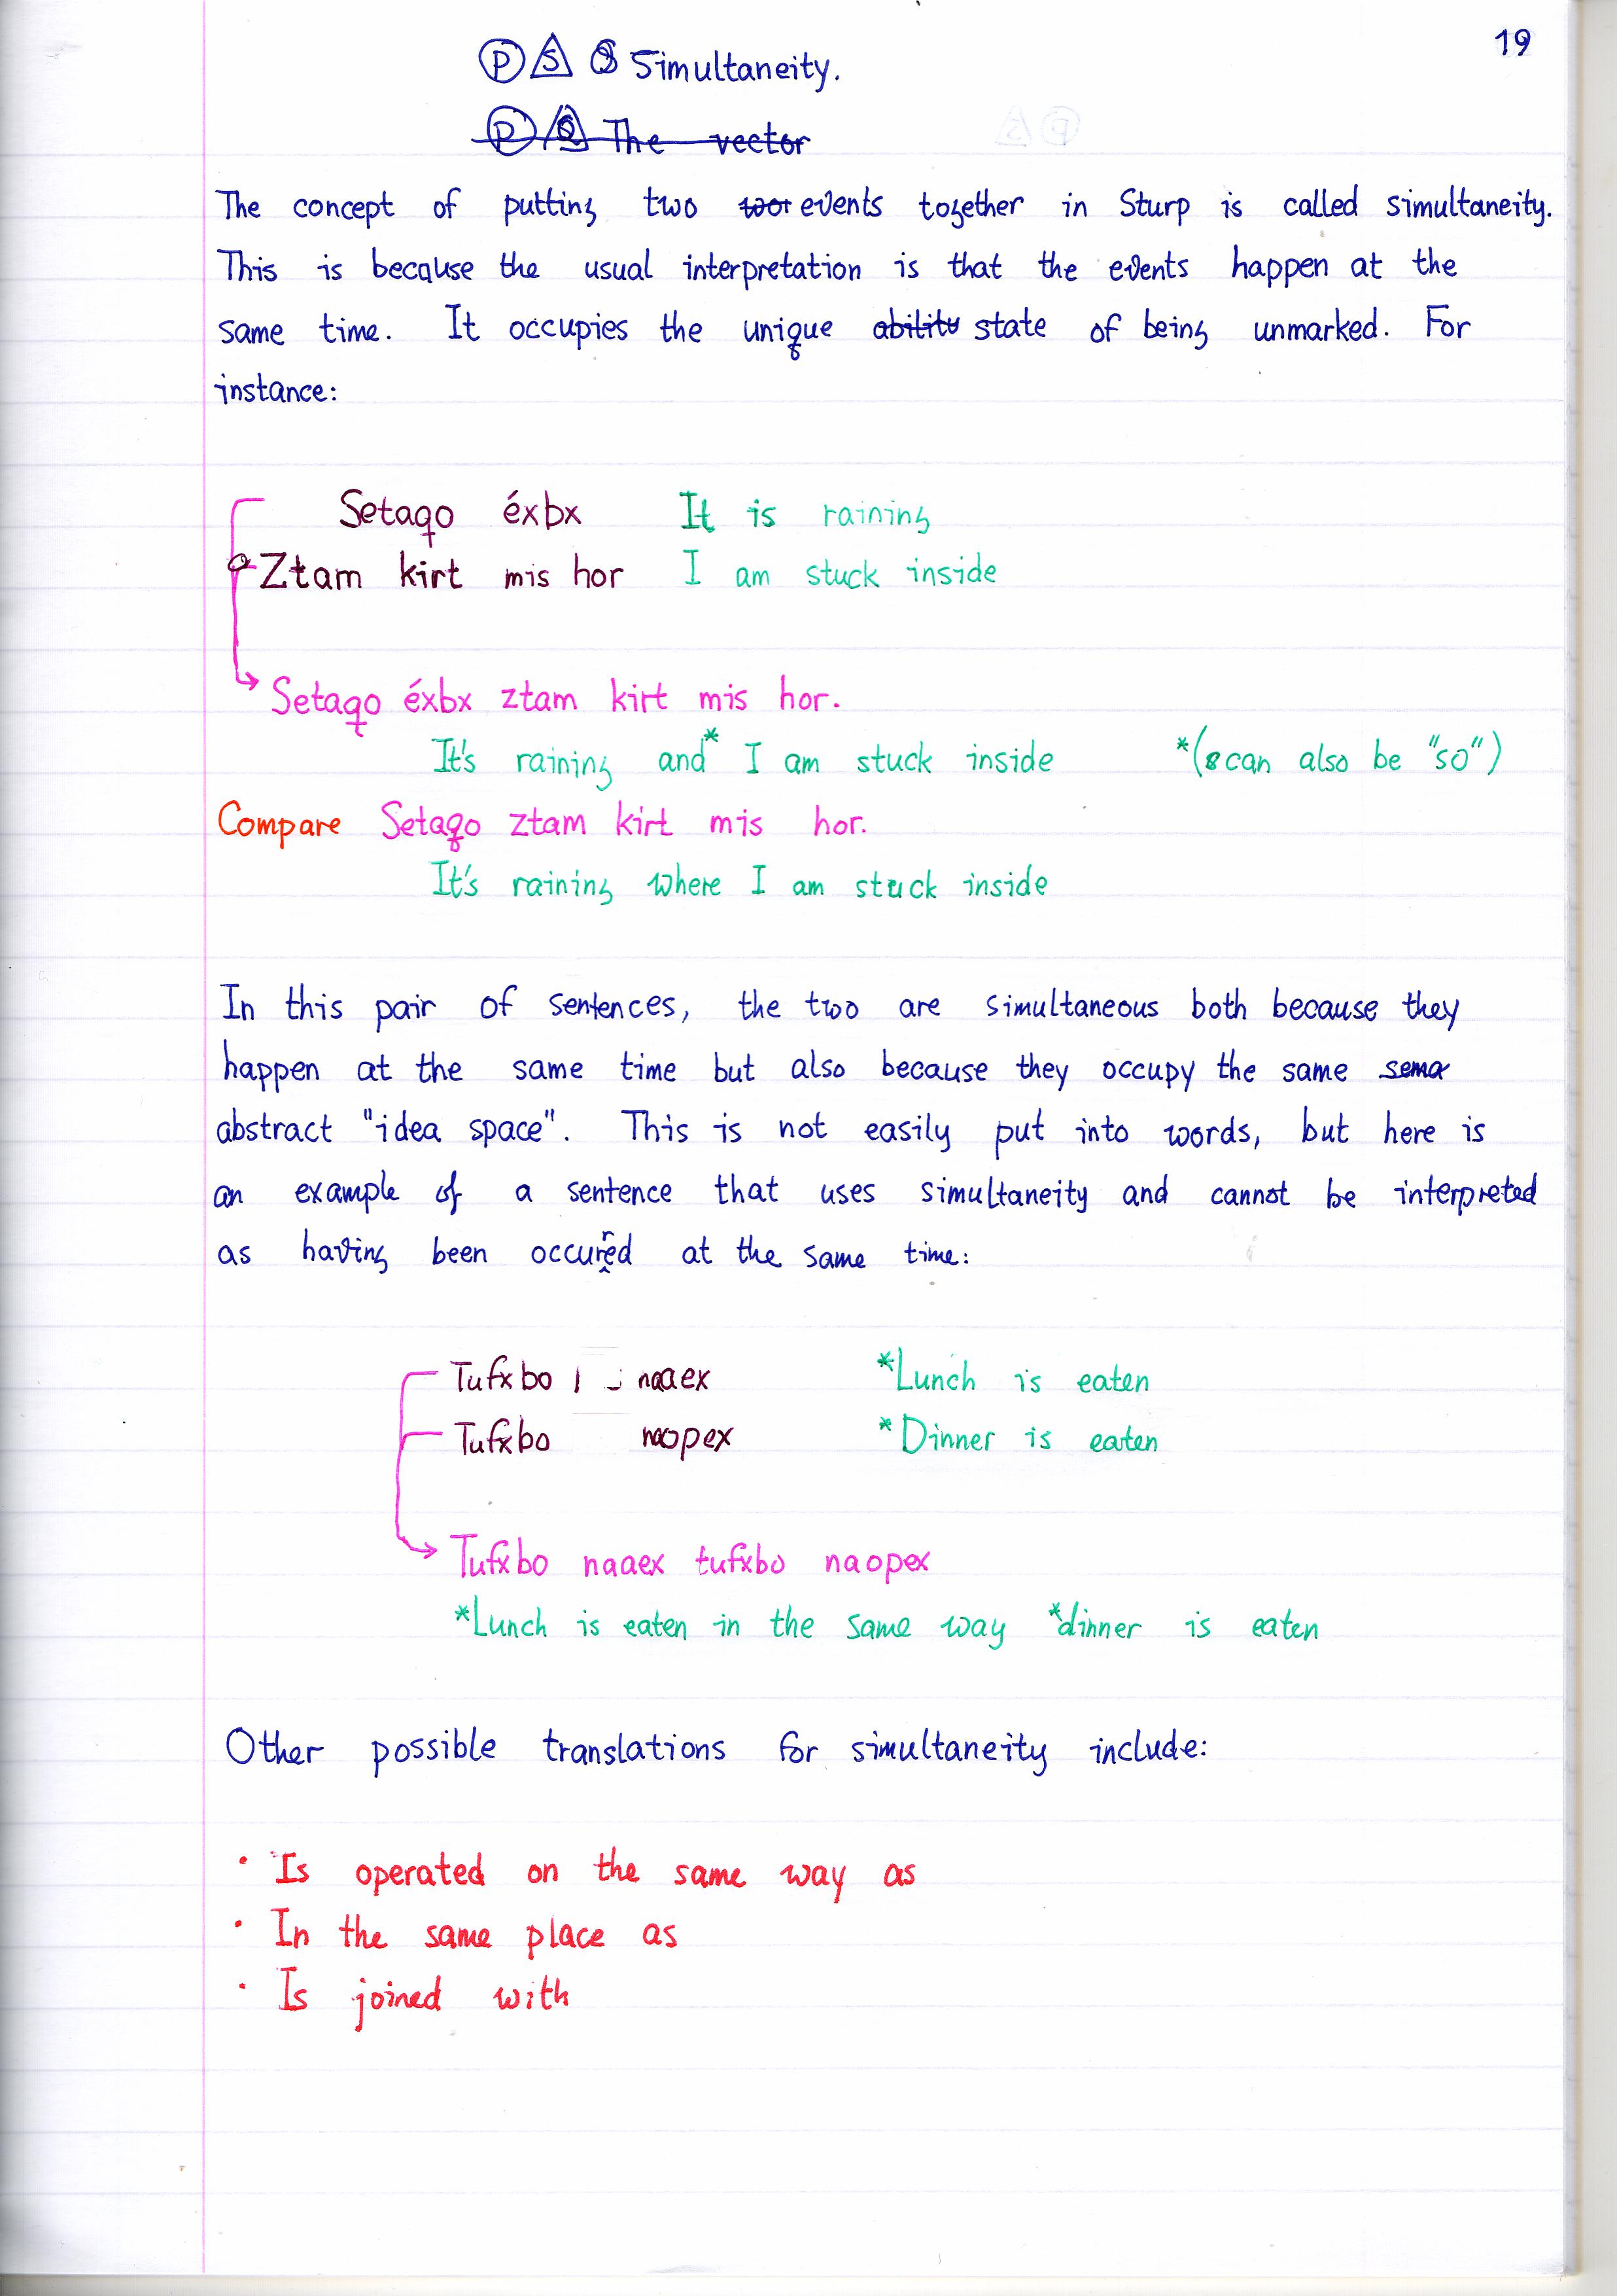 19
P S Simultaneity.
The vector
The concept of putting two wor events together in Sturp is called simultaneity.
This is because the usual interpretation is that the events happen at the
same time. It occupies the unique ability state of being unmarked. For
instance:
Setaqo éxbx It is raining
Ztam kirt mis hor I am stuck inside
Setaqo éxbx ztam kirt mis hor.
It's raining and* I am stuck inside *(can also be "so")
Compare Setaqo ztam kirt mis hor.
It's raining where I am stuck inside
In this pair of sentences, the two are simultaneous both because they
happen at the same time but also because they occupy the same sema
abstract "idea space". This is not easily put into words, but here is
an example of a sentence that uses simultaneity and cannot be interpreted
as having been occurred at the same time:
Tufxbo naaex *Lunch is eaten
Tufxbo naopex *Dinner is eaten
Tufxbo naaex tufxbo naopex
*Lunch is eaten in the same way *dinner is eaten
Other possible translations for simultaneity include:
· Is operated on the same way as
· In the same place as
· Is joined with